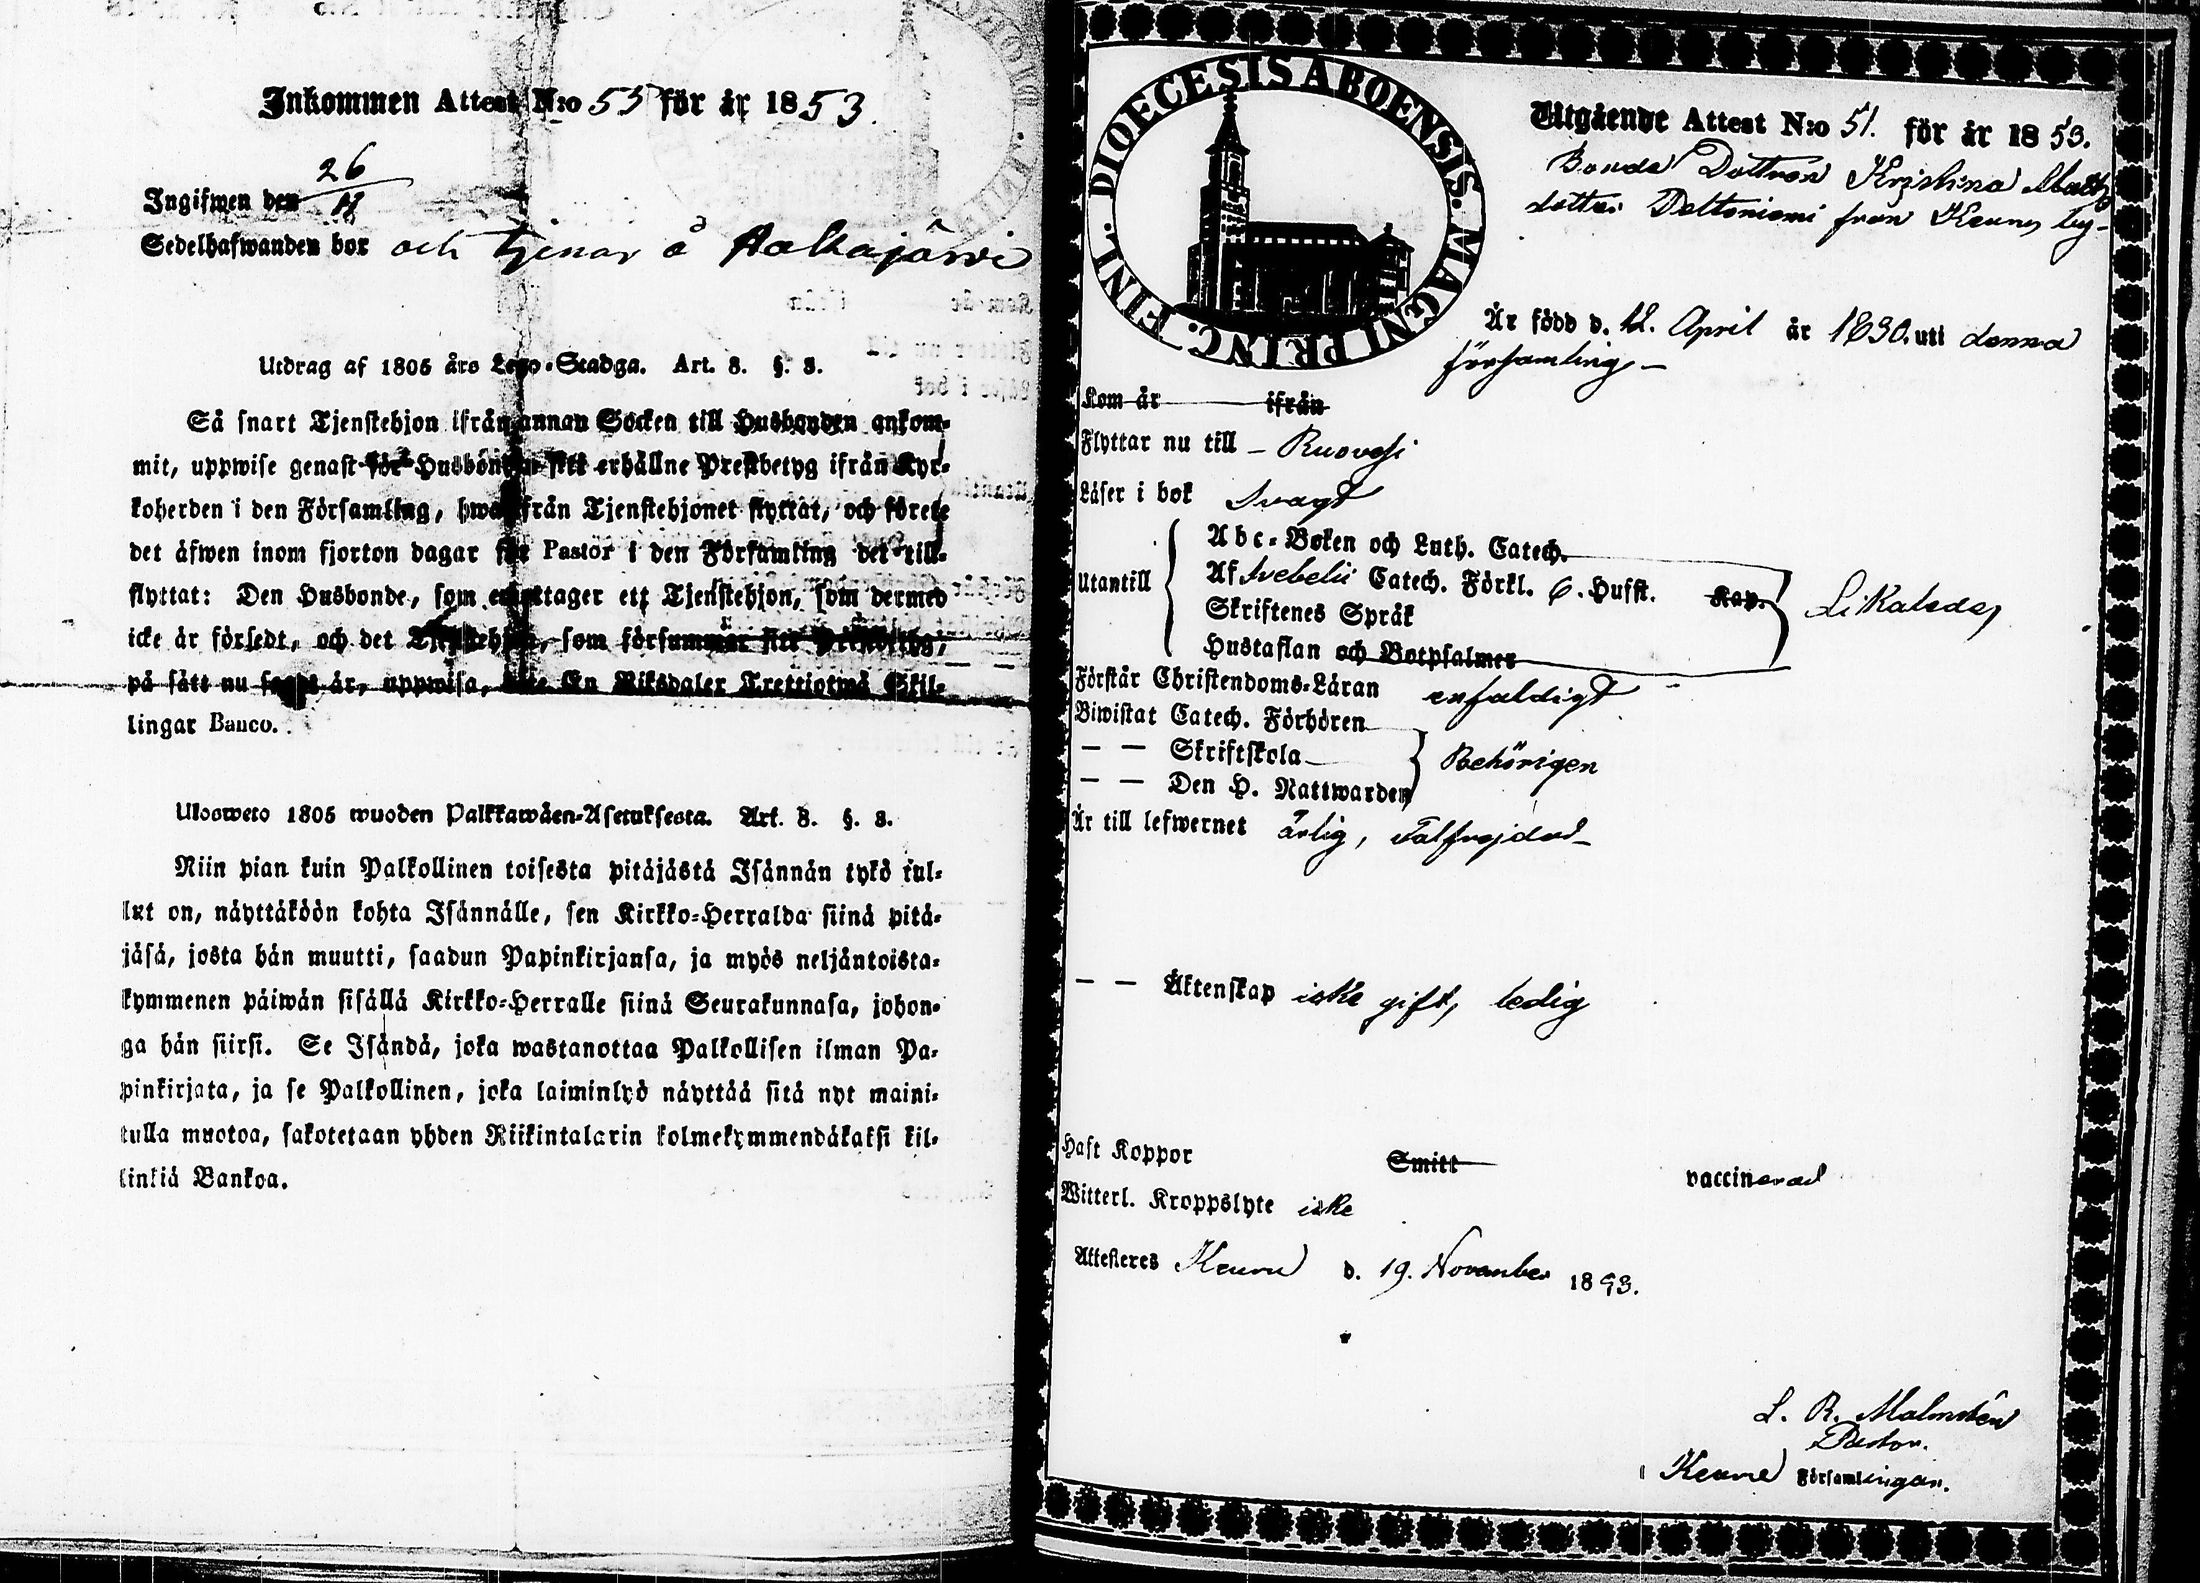 Inkommen Attest N:o 55 för år 1853.
Ingifwen den 26/11
Sedelhafwanden bor och tjenar å
Utdrag af 1805 års Lego-Stadga. Art. 8. §. 8.
Så snart Tjenstehjon ifrån annan Socken till Husbonden ankom-
mit, uppwise genast för Husbonden sitt erhållne Prestbetyg ifrån Kyr-
koherden i den Församling, hwarifrån Tjenstehjonet flyttat, och förete
det äfwen inom fjorton dagar för Pastor i den Församling det till-
flyttat: Den Husbonde, som emottager ett Tjenstehjon, som dermed
icke är försedt, och det Tjenstehjon, som försummar sitt Prestbetyg,
på sätt nu sagt är, uppwisa, böte En Riksdaler Trettiotwå Skil-
lingar Banco.
Ulosweto 1805 wuoden Palkkawäen-Asetuksesta. Art. 8. §. 8.
Niin pian kuin Palkollinen toisesta pitäjästä Isännän tykö tul-
lut on, näyttäköön kohta Isännälle, sen Kirkko-Herralda siinä pitä-
jäsä, josta hän muutti, saadun Papinkirjansa, ja myös neljäntoista-
kymmenen päiwän sisällä Kirkko-Herralle siinä Seurakunnasa, johon-
ga hän siirsi. Se Isändä, joka wastanottaa Palkollisen ilman Pa-
pinkirjata, ja se Palkollinen, joka laiminlyö näyttää sitä nyt maini-
tulla muotoa, sakotetaan yhden Riikintalarin kolmekymmendäkaksi kil-
linkiä Bankoa.
DIOECESIS ABOENSIS. MAGNI PRINC. FINL.
Utgående Attest N:o 51. för år 1853.
Bonde Dottren Kristina Matts
dotter från Keuru by-
Är född d. 12. April år 1830. uti denna
församling -
Kom år ifrån
Flyttar nu till - Ruovesi
Läser i bok svagt
Utantill
Abc-Boken och Luth. Catech.
Af Svebelii Catech. Förkl. 6. Hufst. Kap.
Skriftenes Språk
Hustaflan och Botpsalmer
Likaledes
Förstår Christendoms-Läran enfaldigt
Biwistat Catech. Förhören
— — Skriftskola
— — Den H. Nattwarden
Behörigen
Är till lefwernet ärlig, välfrejdad -
— — Äktenskap icke gift, ledig
Haft Koppor Smitt vaccinerad
Witterl. Kroppslyte icke
Attesteres Keuru d. 19. November 1853.
L. R. Malmstén
Pastor.
i Keuru Församlingar.